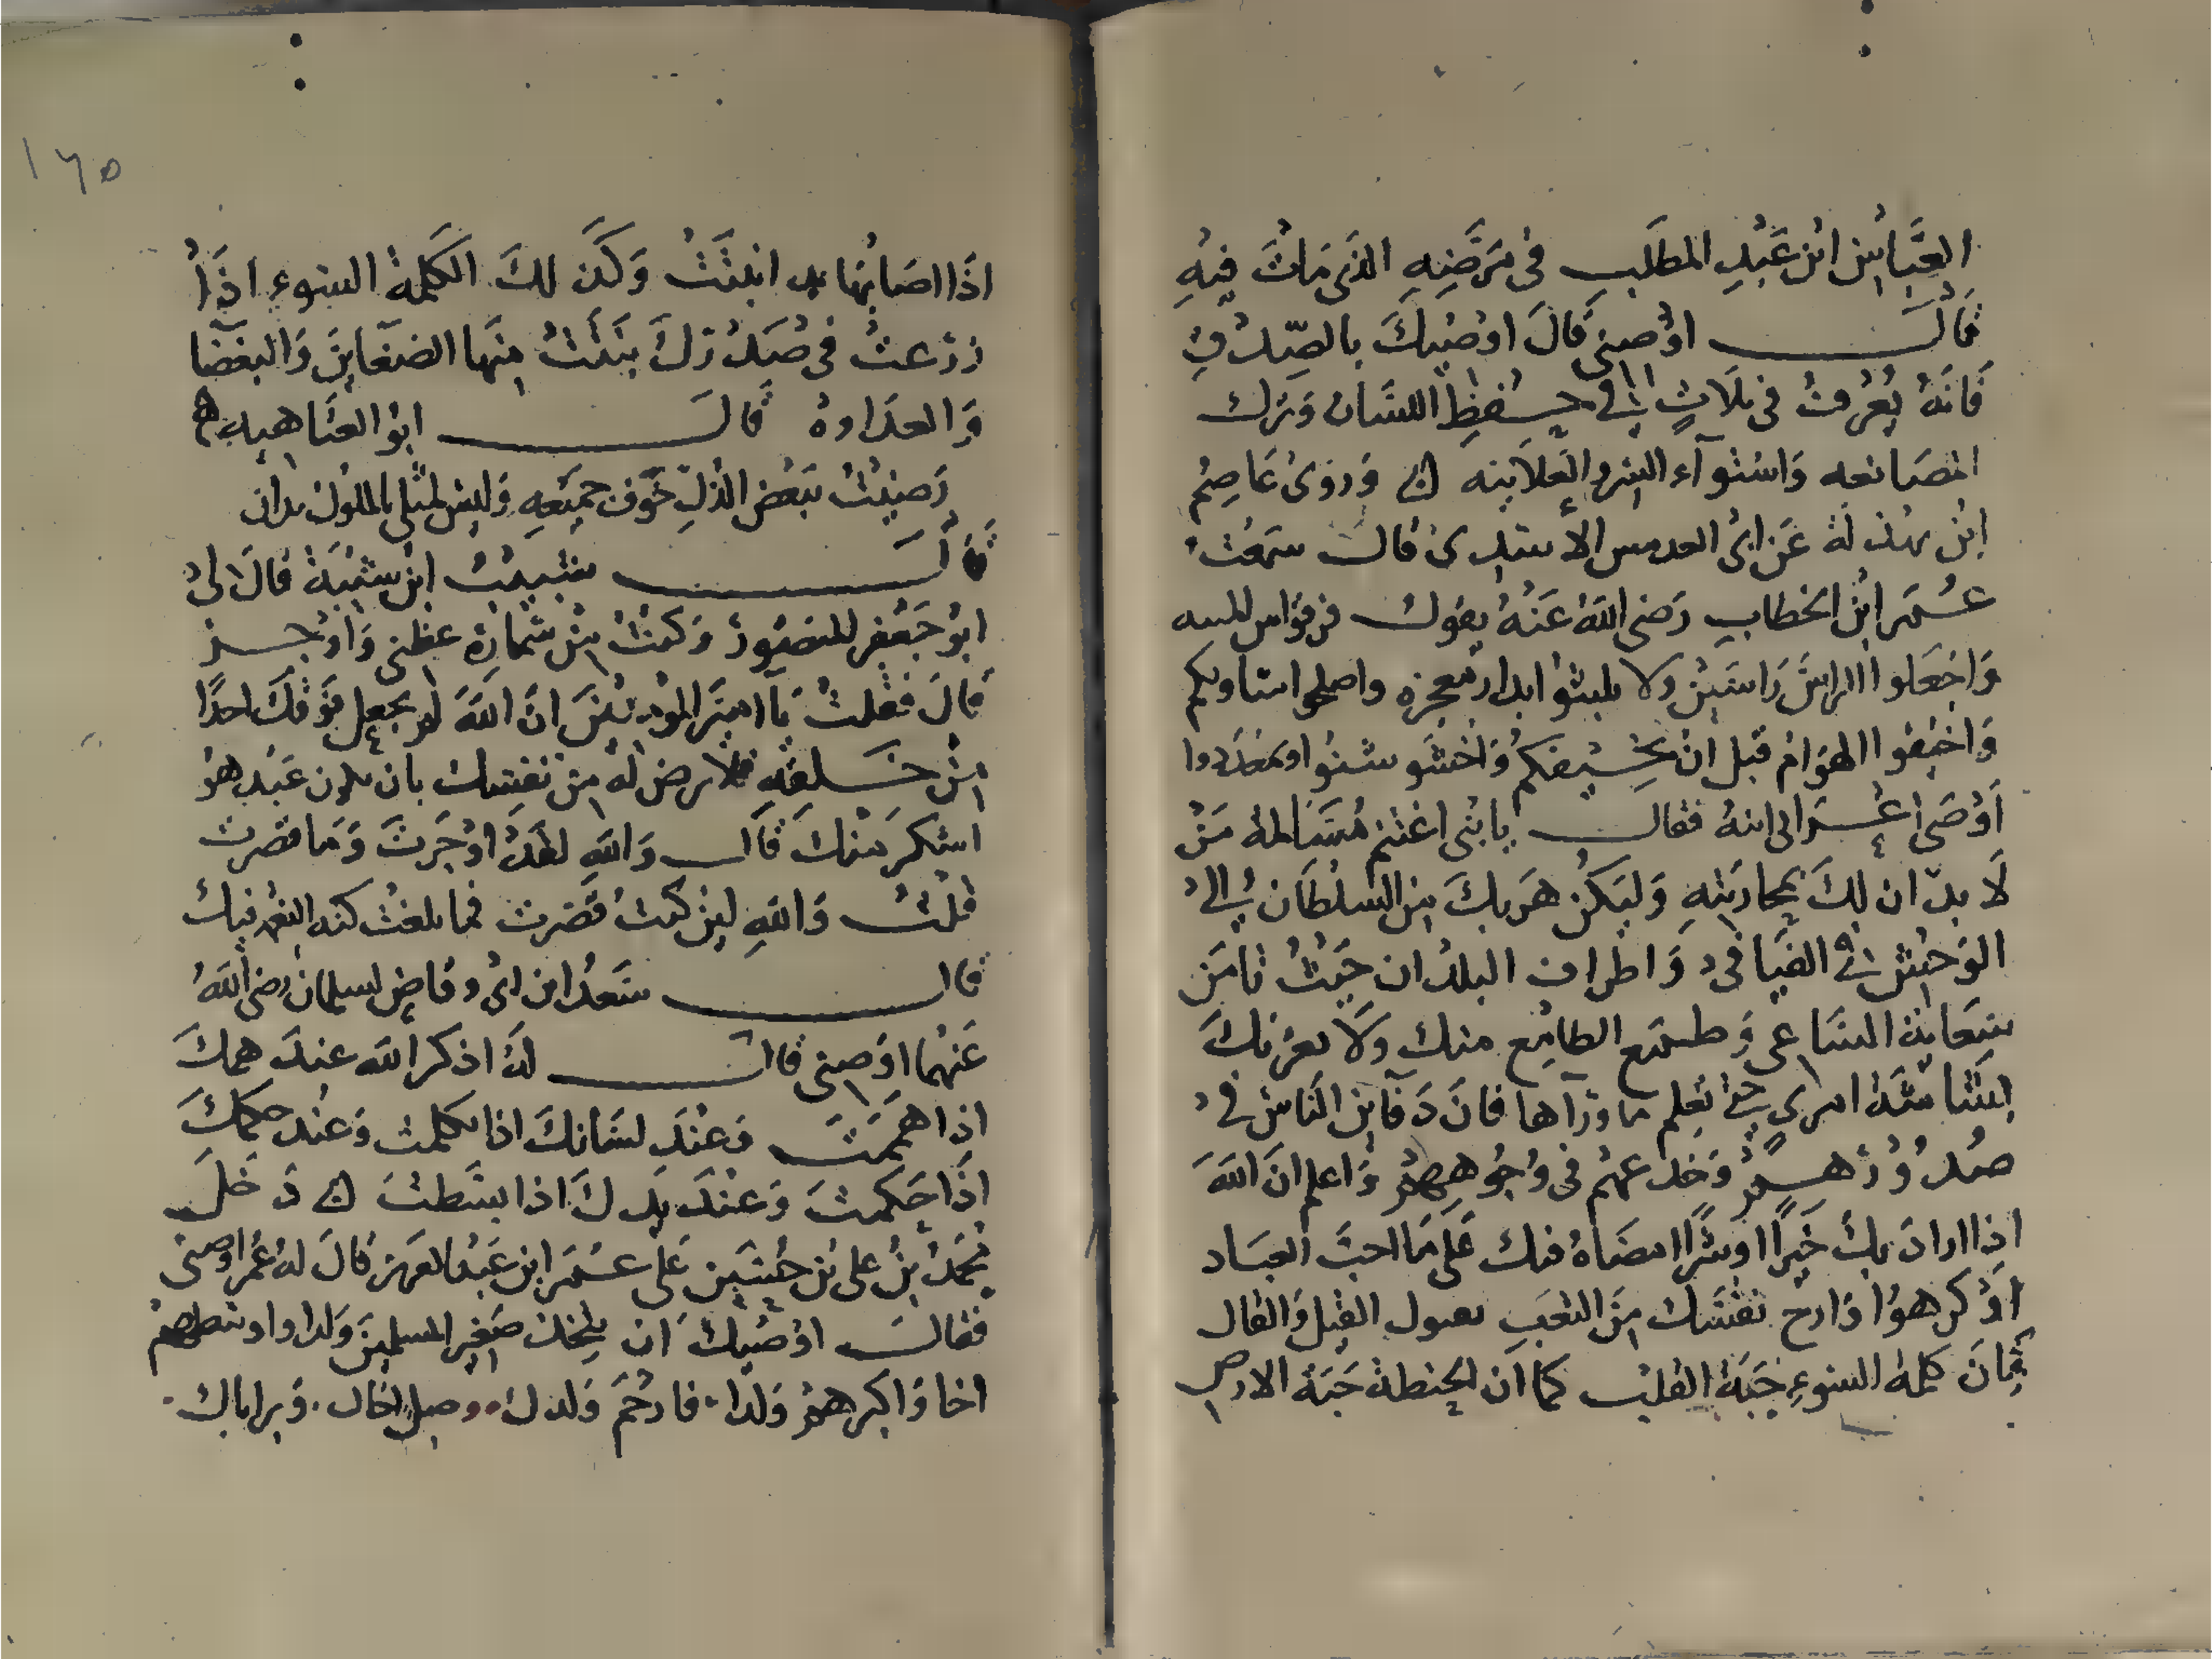 العباس ابن عبد المطلب في مرضه الذي مات فيه
قال اوصني قال اوصيك بالصدق
فانه يعرف في ثلاث في حفظ اللسان وترك
المصانعه واستوآء السر والعلانيه وروى عاصم
ابن بهدلة عن ابي العدبس الاسدى قال سمعت
عمر ابن الخطاب رضى الله عنه يقول فرقوا من المنيه
واجعلوا الراس راسين ولا تلبثوا بدار معجزه واصلحوا مثاويكم
واخيفوا الهوام قبل ان تخيفكم واخشوشنوا وتمعددوا
اوصى الى ابنه فقال يا بنى اغتنم مسالمة من
لا يدان لك بمحاربته وليكن هربك من السلطان الى
الوحش في الفيافي واطراف البلدان حيث تامن
سعاية الساعى وطمع الطامع منك ولا يغرنك
بشاشة امرى حتى تعلم ما ورآها فان دفآين الناس في
صدورهم وخدعهم في وجوههم واعلم ان الله
اذا اراد بك خيرا او شرا امضاه فيك على ما احب العباد
او كرهوا وارح نفسك من التعب بقول القيل والقال
فان كلمة السوء حبة القلب كما ان الحنطة حبة الارض
١٦٥
اذا اصابها ندى انبتت وكذلك الكلمة السوء اذا
زرعت في صدرك نبتت منها الضغاين والبغضا
والعداوة قال ابو العتاهيه
رضيت ببعض الذل خوف جميعه وليس لمثلى بالملوك يدان
قال شبيب ابن شيبة قال لى
ابو جعفر المنصور وكنت من سماره عظنى واوجز
قال فقلت يا امير المومنين ان الله لم يجعل فوقك احدا
من خلقه فلا ترض له من نفسك بان يكون عبد هو
اشكر منك قال والله لقد اوجزت وما قصرت
قلت والله لين كنت قصرت فما بلغت كنه النعم فيك
قال سعد ابن ابى وقاص لسلمان رضى الله
عنهما اوصنى قال له اذكر الله عند همك
اذا هممت وعند لسانك اذا تكلمت وعند حكمك
اذا حكمت وعند يدك اذا بسطت دخل
محمد بن على بن حسين على عمر ابن عبد العزيز قال له عمر اوصنى
فقال اوصيك ان تتخذ صغير المسلمين ولدا واوسطهم
اخا واكبرهم ولدا فارحم ولدك وصل اخاك وبر اباك